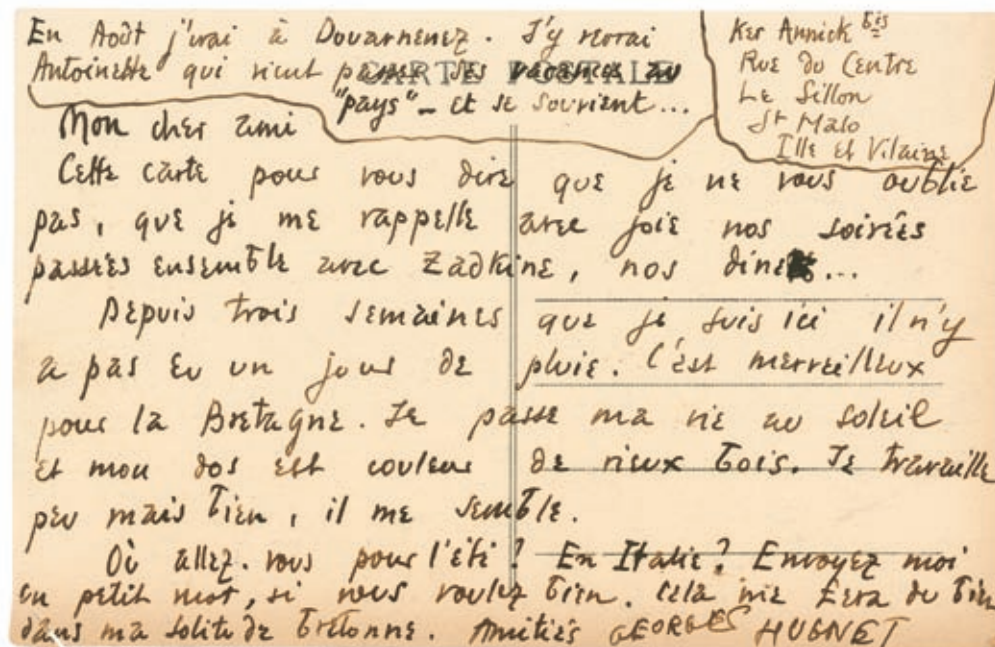 En Août j'irai à Douarnenez. J'y verrai
Antoinette qui vient passer ses vacances au
"pays" - et se souvient...
CARTE POSTALE
Ker Annick bis
Rue du Centre
Le Sillon
St Malo
Ille et Vilaine
Mon cher ami
Cette carte pour vous dire que je ne vous oublie
pas, que je me rappelle avec joie nos soirées
passées ensemble avec Zadkine, nos diners...
Depuis trois semaines que je suis ici il n'y
a pas eu un jour de pluie. C'est merveilleux
pour la Bretagne. Je passe ma vie au soleil
et mon dos est couleur de vieux bois. Je travaille
peu mais bien, il me semble.
Où allez-vous pour l'été? En Italie? Envoyez moi
un petit mot, si vous voulez bien. Cela me fera du bien
dans ma solitude bretonne. Amitiés GEORGES HUGNET